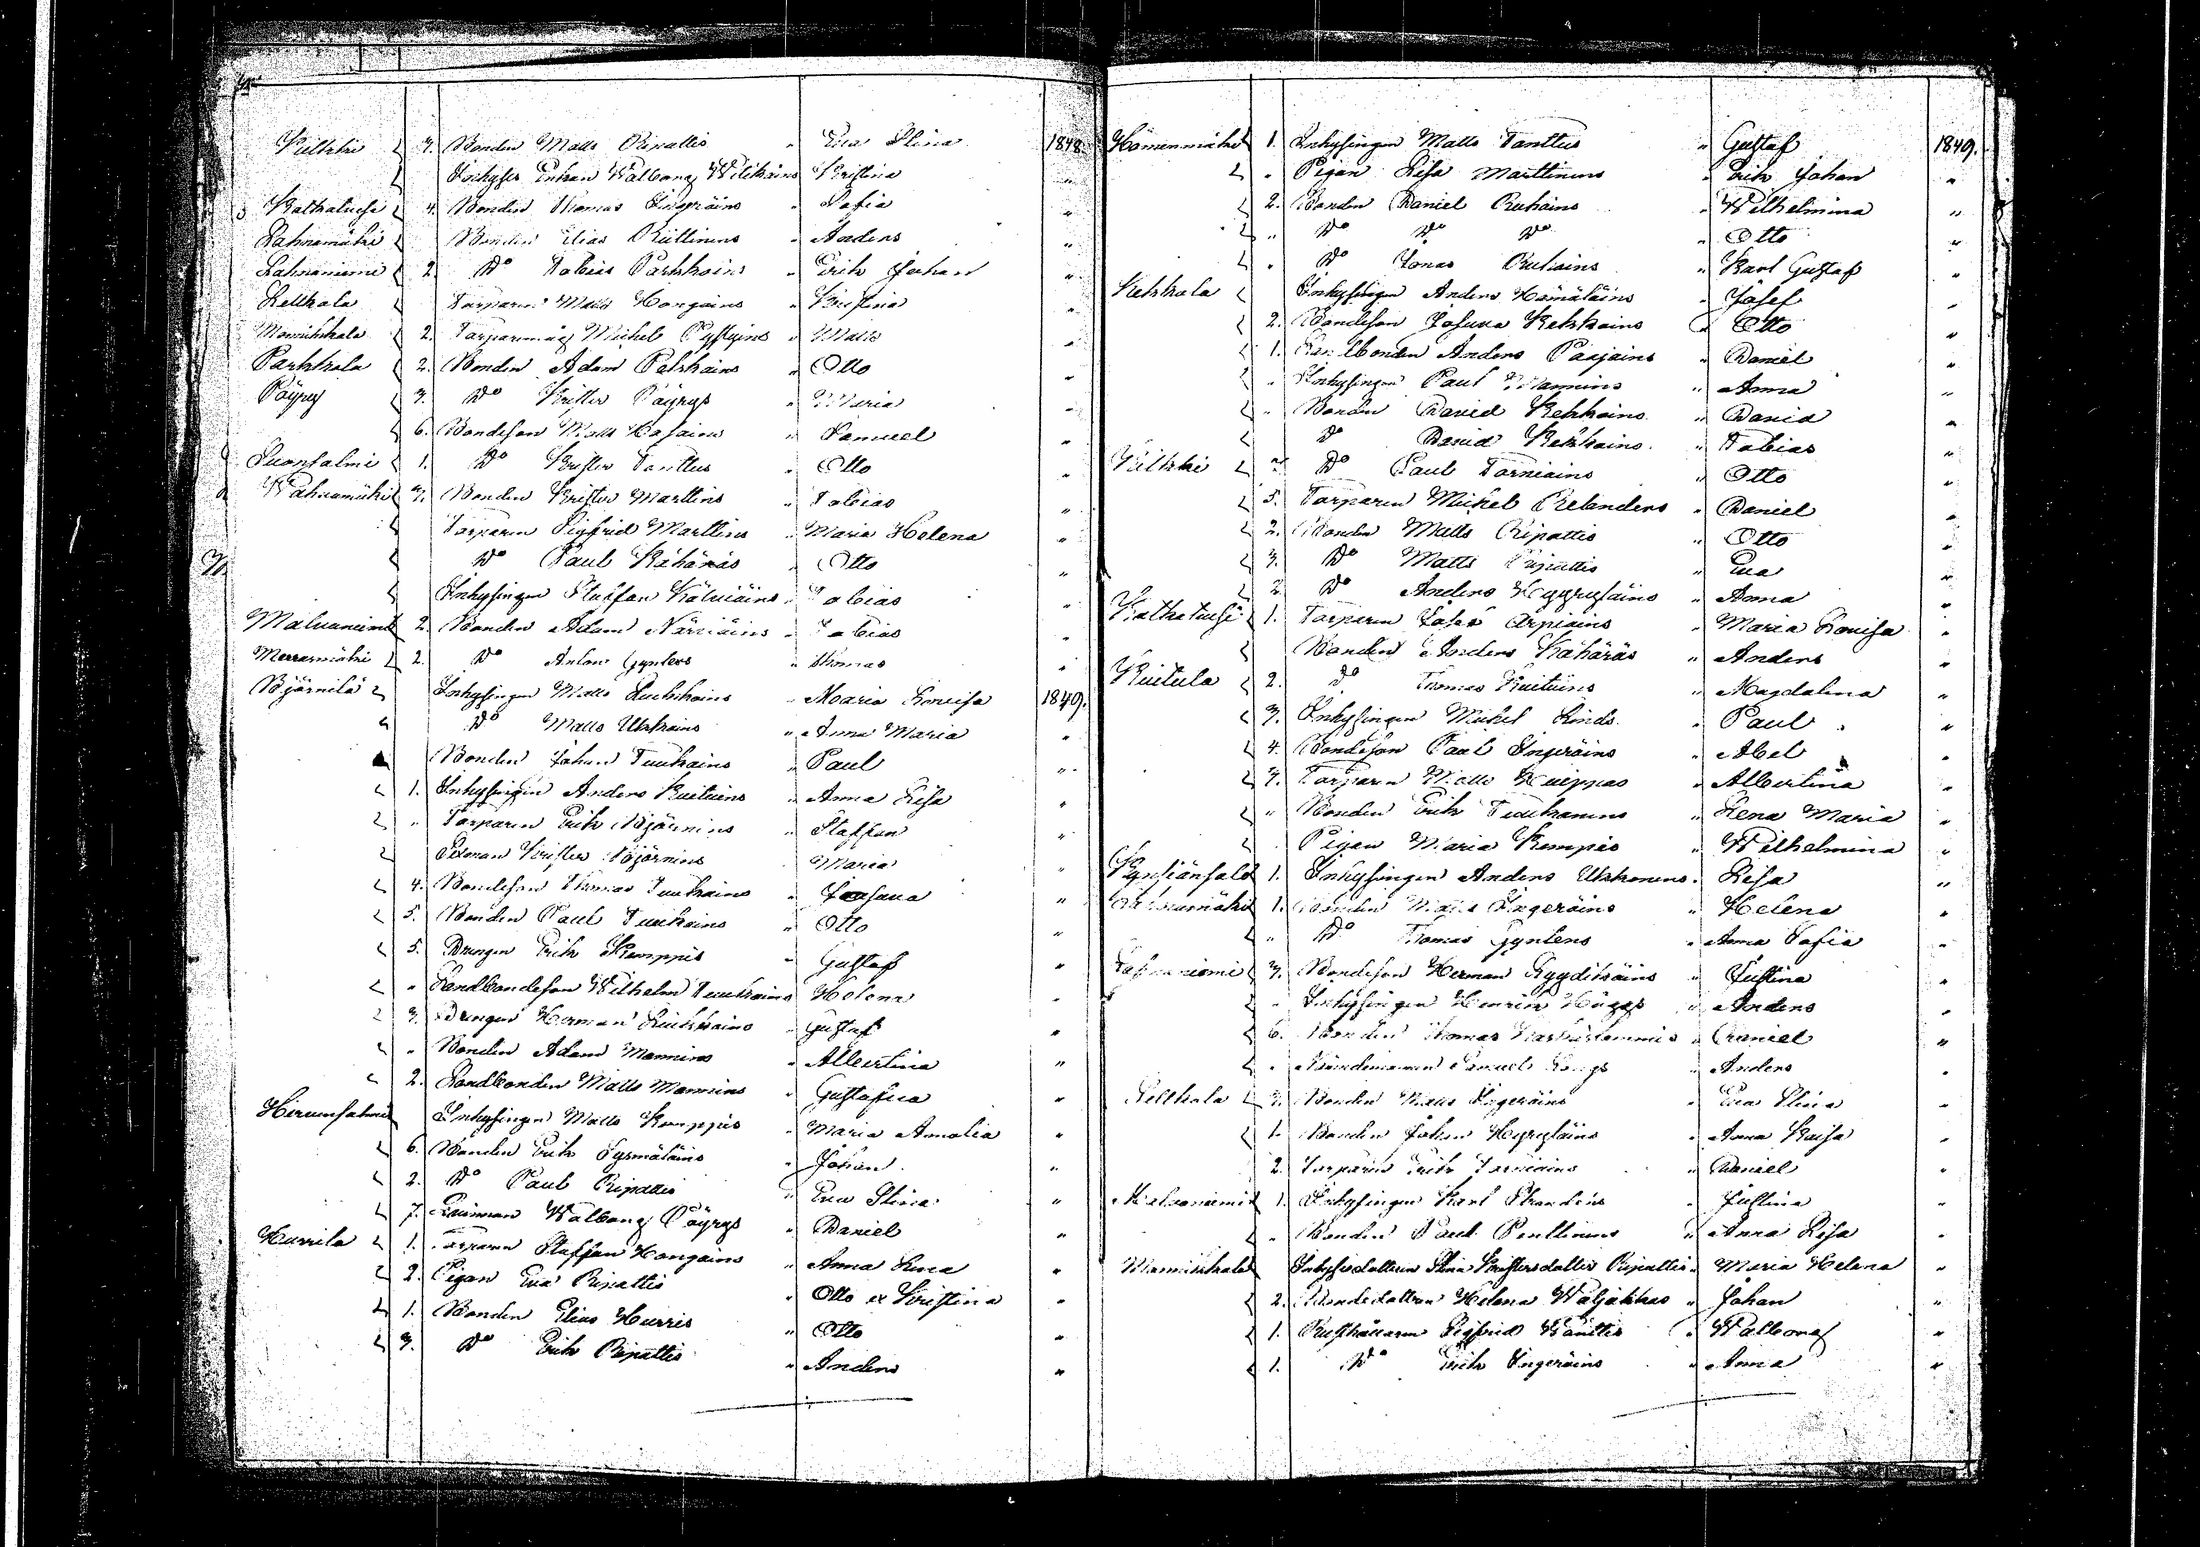 Kiltkki 3. Bonden Matts Ripattis " Eva Stina 1848.
Inhyses Enkan Walborg Wilskains Kristina "
Kalkaluesi 4. Bonden Thomas Ingeräins " Sofia "
Lahnamäki Bonden Elias Kiiltinens " Anders "
Lahnaniemi 2. Do Tobias Parkkoins " Erik Johan "
Lellkala Torparen Matts Hongains " Kristina "
Mannikkala 2. Torparemåg Michel Pystyins " Matts "
Parkkola 2. Bonden Adam Pelkkains " Otto "
Päyry 3. Do Krister Päyrys " Maria "
6. Bondeson Matts Hasains " Samuel "
Suonsalmi 1. Do Krister Tanttus " Otto "
Wahnamäki 3. Bonden Krister Marttins " Tobias "
Torparen Sigfrid Marttins " Maria Helena "
Do Paul Kähäräs " Otto "
Inhysingen Staffan Kälviäins " Tobias "
Malvaniemi 2. Bonden Adam Närväins " Tobias "
Merrasmäki 2. Do Anton Gynters " Thomas "
Björnilä Inhysingen Matts Luukkains " Maria Lovisa 1849.
Do Matts Ukkoins " Anna Maria "
Bonden Johan Tuukains " Paul "
1. Inhysingen Anders Kuituins " Anna Lisa "
" Torparen Erik Björnins " Staffan "
Sexman Krister Björnins " Maria "
4. Bondeson Thomas Tuukains " Josua "
5. Bonden Paul Tuukains " Otto "
5. Drengen Erik Kemppis " Gustaf "
" Landbondeson Wilhelm Tuukains Helena "
3. Drengen Herman Luukkains " Gustaf "
" Bonden Adam Mannins " Albertina "
2. Landbonden Matts Mannins " Gustafva "
Hirvensalmi Inhysingen Matts Kemppis " Maria Amalia "
6. Bonden Erik Sysmäläins " Johan "
2. Do Paul Ripattis " Eva Stina "
7. Walborg Päyrys " Daniel
Hurrila 1. Torparen Staffan Hongains " Anna Lena "
2. Pigan Eva Ripattis " Otto ex Kristina "
1. Bonden Elias Hurris " Otto "
3. Do Erik Ripattis " Anders "
Hämeenmäki 1. Inhysingen Matts Tanttus " Gustaf 1849.
" Pigan Lisa Marttinens " Erik Johan "
2. Bonden Daniel Ruhains " Wilhelmina "
" Do Do Do " Otto "
" Do Jonas Ruhains " Karl Gustaf "
Kekkola Inhysingen Anders Hämäläins " Josef "
2. Bondeson Josua Kekkoins " Otto "
1. Landbonden Anders Paajains " Daniel "
" Inhysingen Paul Mannins " Anna "
" Bonden David Kekkoins " David "
Do David Kekkoins " Tobias "
Kiltkki Do Paul Torniains " Otto "
5. Torparen Michel Relanders " Daniel "
2. Bonden Matts Ripattis " Otto "
3. Do Matts Ripattis " Eva "
2. Do Anders Hyyryläins " Anna "
Kalkaluesi 1. Torparen Arpiains " Maria Lovisa "
Bonden Anders Kähäräs " Anders "
Kuitula 2. Do Thomas Kuituins " Magdalena "
3. Inhysingen Michel Linds " Paul "
4. Bondeson Paul Ingeräins " Abel "
7. Torparen Matts Huippas " Albertina "
" Bonden Erik Tuukanens " Lena Maria "
Pigan Maria Kemppis " Wilhelmina "
1. Inhysingen Anders Ukkonens " Lisa "
1. Bonden Matts Ingeräins " Helena "
" Do Thomas Gyntens " Anna Sofia "
3. Bondeson Herman Kyydikäins " Justina "
" Inhysingen Henrik Höggs " Anders "
6. Bonden Thomas " Daniel "
" Samuel " Anders "
Lellkala 3. Bonden Matts Ingeräins " Eva Stina "
1. Bonden Johan Hyryläins " Anna Kaisa "
2. Torparen Erik Torniains " Daniel "
Malvaniemi 1. Inhysingen Karl Strandens " Justina "
" Bonden Paul Penttinens " Anna Lisa "
Mannikkala Inhysesdottern Stina Kristersdotter Ripattis " Maria Helena "
2. Bondedottren Helena Waljakkas " Johan "
1. Rusthållaren Sigfrid Wänttis " Walborg "
1. Do Erik Ingeräins " Anna "